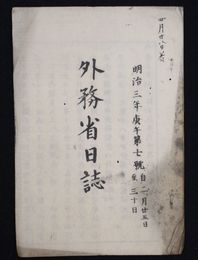 明治三年庚午第七號 自二月廿五日
至三十日
外務省日誌